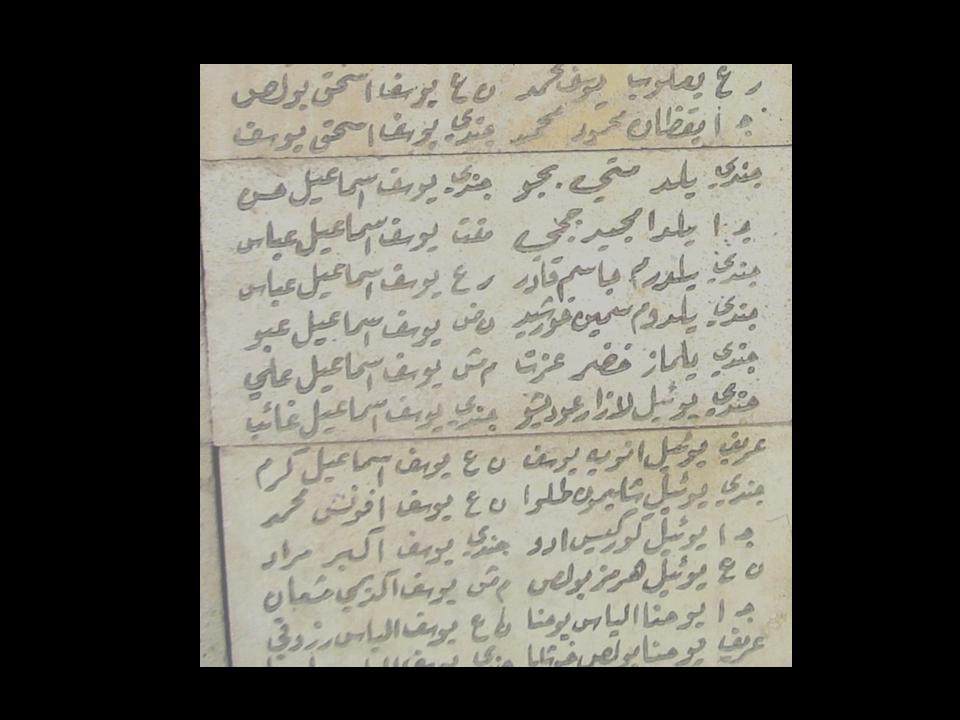 ر ع يعقوب يوسف محمد ن ع يوسف اسحق بولص
ج ا يقظان محمود محمد جندي يوسف اسحق يوسف
جندي يلد متي بجو جندي يوسف اسماعيل حسن
ج ا يلدا مجيد ججي يوسف اسماعيل عباس
جندي جاسم قادر ر ع يوسف اسماعيل عباس
جندي يلدرم سمين خورشيد ن ض يوسف اسماعيل عبو
جندي يلماز خضر عزت م ش يوسف اسماعيل علي
جندي يوئيل لازار عوديشو جندي يوسف اسماعيل غائب
عريف يوئيل انويه يوسف ن ع يوسف اسماعيل كرم
جندي يوئيل شليمون طلوا ن ع يوسف محمد
ج ا يوئيل كوركيس ادو جندي يوسف اكبر مراد
ن ع يوئيل هرمز بولص م ش يوسف شعبان
ج ا يوحنا الياس يوحنا ن ع يوسف الياس رزوقي
عريف يوحنا بولص جندي يوسف